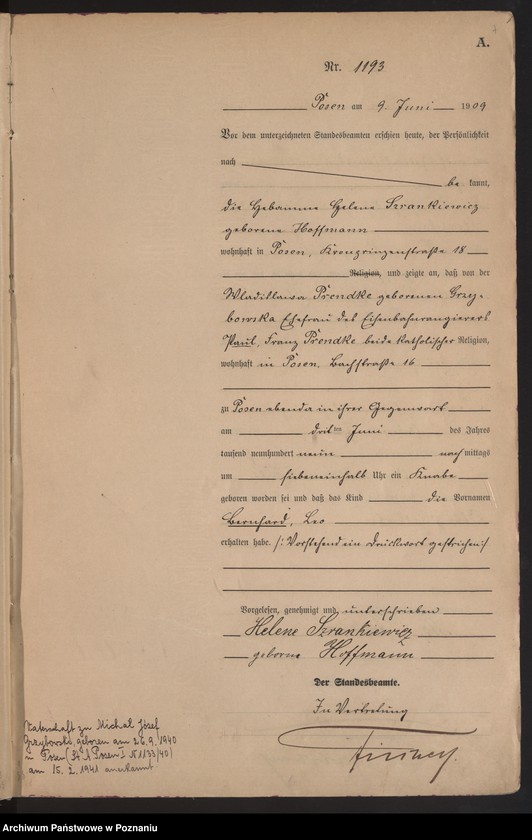 A.
Nr. 1193
Posen am 9. Juni 1909
Vor dem unterzeichneten Standesbeamten erschien heute, der Persönlichkeit
nach
be kannt,
die Hebamme Helene Szrankiewicz
geborene Hoffmann
wohnhaft in Posen, Kronprinzenstraße 18
Religion, und zeigte an, daß von der
Wladislawa Prendke geborenen Grzy-
bowska Ehefrau des Eisenbahnrangierers
Paul, Franz Prendke beide katholischer Religion,
wohnhaft in Posen, Bachstraße 16
zu Posen ebenda in ihrer Gegenwart
am dritten Juni des Jahres
tausend neunhundert neun nachmittags
um siebeneinhalb Uhr ein Knabe
geboren worden sei und daß das Kind die Vornamen
Bernhard, Leo
erhalten habe. /: Vorstehend ein Druckwort gestrichen :/
Vorgelesen, genehmigt und unterschrieben
Helene Szrankiewicz
geborne Hoffmann
Der Standesbeamte.
In Vertretung
Vaterschaft zu Michal Józef
Grzybowski, geboren am 26.9.1940
in Posen (St. A Posen I N 1133/40)
am 15. 2. 1941 anerkannt
Archiwum Państwowe w Poznaniu